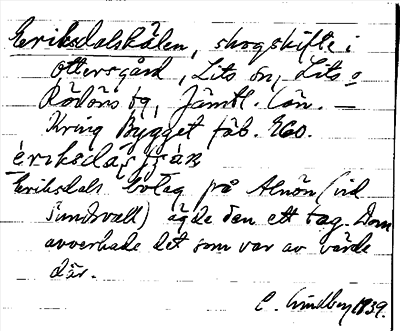 Eriksdalskälen, skogskifte i
Ottersgård, Lits sn, Lits o
Rödöns tg, Jämtl. län. —
Kring Brygget fäb. EGO.
ériksdàsṣjän
Eriksdals bolag på Alnön (vid
Sundsvall) ägde den ett tag. Dom
avverkade det som var av värde
där.
C. Lindberg 1939.